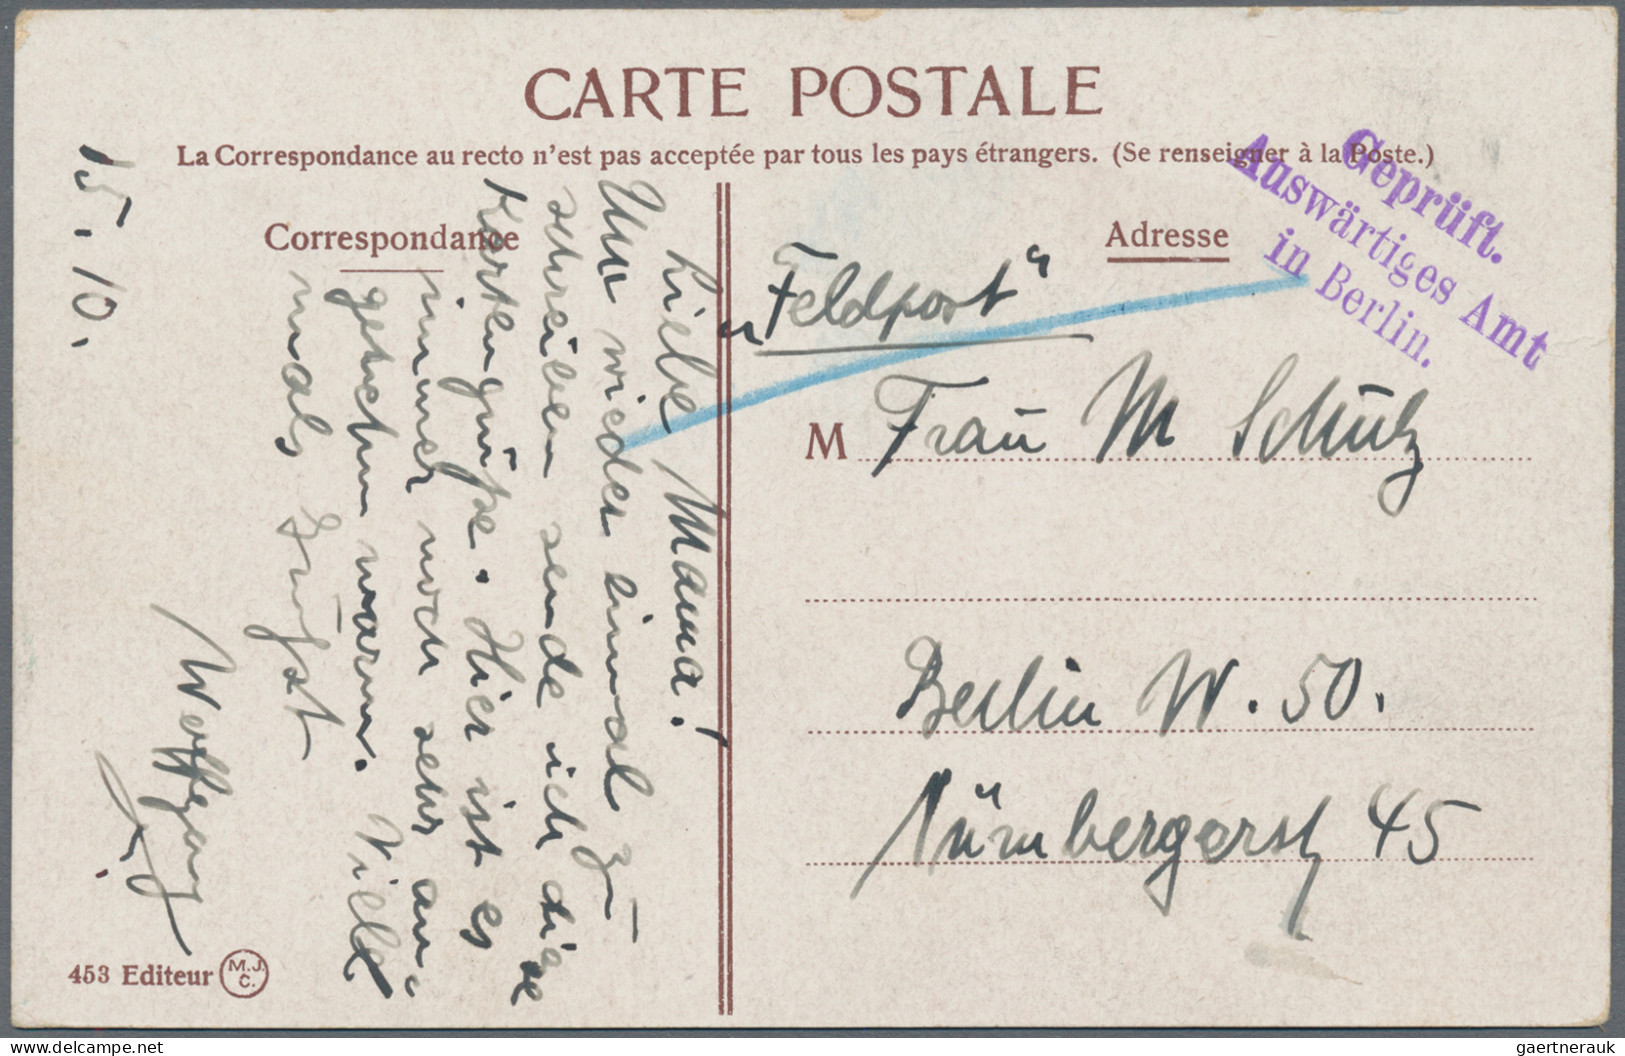 CARTE POSTALE
La Correspondance au recto n'est pas acceptée par tous les pays étrangers. (Se renseigner à la Poste.)
Correspondance
Adresse
Geprüft.
Auswärtiges Amt
in Berlin.
15. 10.
Liebe Mama!
Um wieder einmal zu
schreiben sende ich diese
Kartengrüße. Hier ist es
immer noch sehr an-
genehm warm. Viele
mals grüßt
Wolfgang
„Feldpost“
M Frau M Schulz
Berlin W. 50.
Nürnbergerst 45
453 Editeur M.J.C.
gaertnerauk
delcampe.net